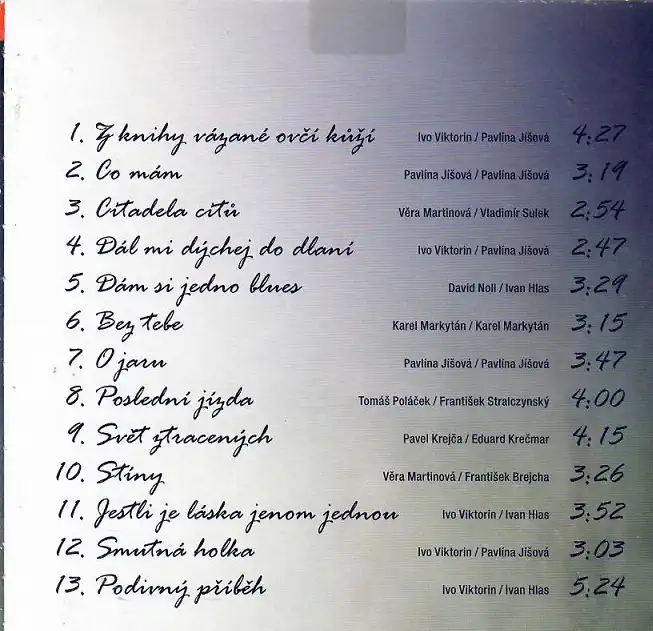 1. Z knihy vázané ovčí kůží Ivo Viktorin / Pavlína Jíšová 4:27
2. Co mám Pavlína Jíšová / Pavlína Jíšová 3:19
3. Citadela citů Věra Martinová / Vladimír Sulek 2:54
4. Dál mi dýchej do dlaní Ivo Viktorin / Pavlína Jíšová 2:47
5. Dám si jedno blues David Noll / Ivan Hlas 3:29
6. Bez tebe Karel Markytán / Karel Markytán 3:15
7. O jaru Pavlína Jíšová / Pavlína Jíšová 3:47
8. Poslední jízda Tomáš Poláček / František Stralczynský 4:00
9. Svět ztracených Pavel Krejča / Eduard Krečmar 4:15
10. Stíny Věra Martinová / František Brejcha 3:26
11. Jestli je láska jenom jednou Ivo Viktorin / Ivan Hlas 3:52
12. Smutná holka Ivo Viktorin / Pavlína Jíšová 3:03
13. Podivný příběh Ivo Viktorin / Ivan Hlas 5:24